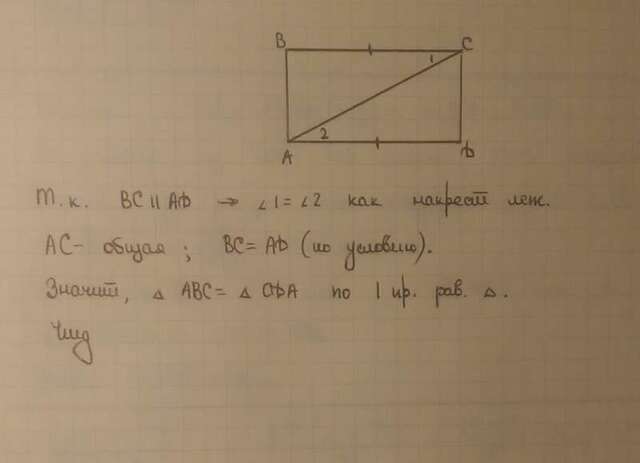 B C
1
2
A D
Т.к. BC || AD → ∠1 = ∠2 как накрест леж.
AC - общая ; BC = AD (по условию).
Значит, △ ABC = △ CDA по I пр. рав. △.
Чтд